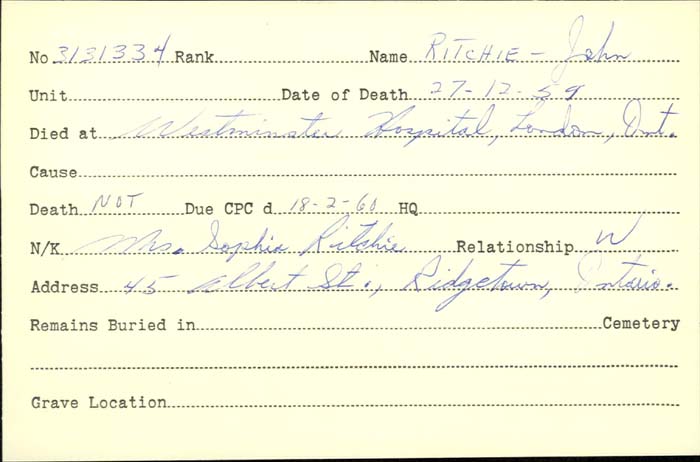 No 3131334 Rank Name RITCHIE - John
Unit Date of Death 27-12-59
Died at Westminster Hospital, London, Ont.
Cause
Death NOT Due CPC d 18-2-60 HQ
N/K Mrs. Sophia Ritchie Relationship W
Address 45 Albert St., Ridgetown, Ontario.
Remains Buried in Cemetery
Grave Location